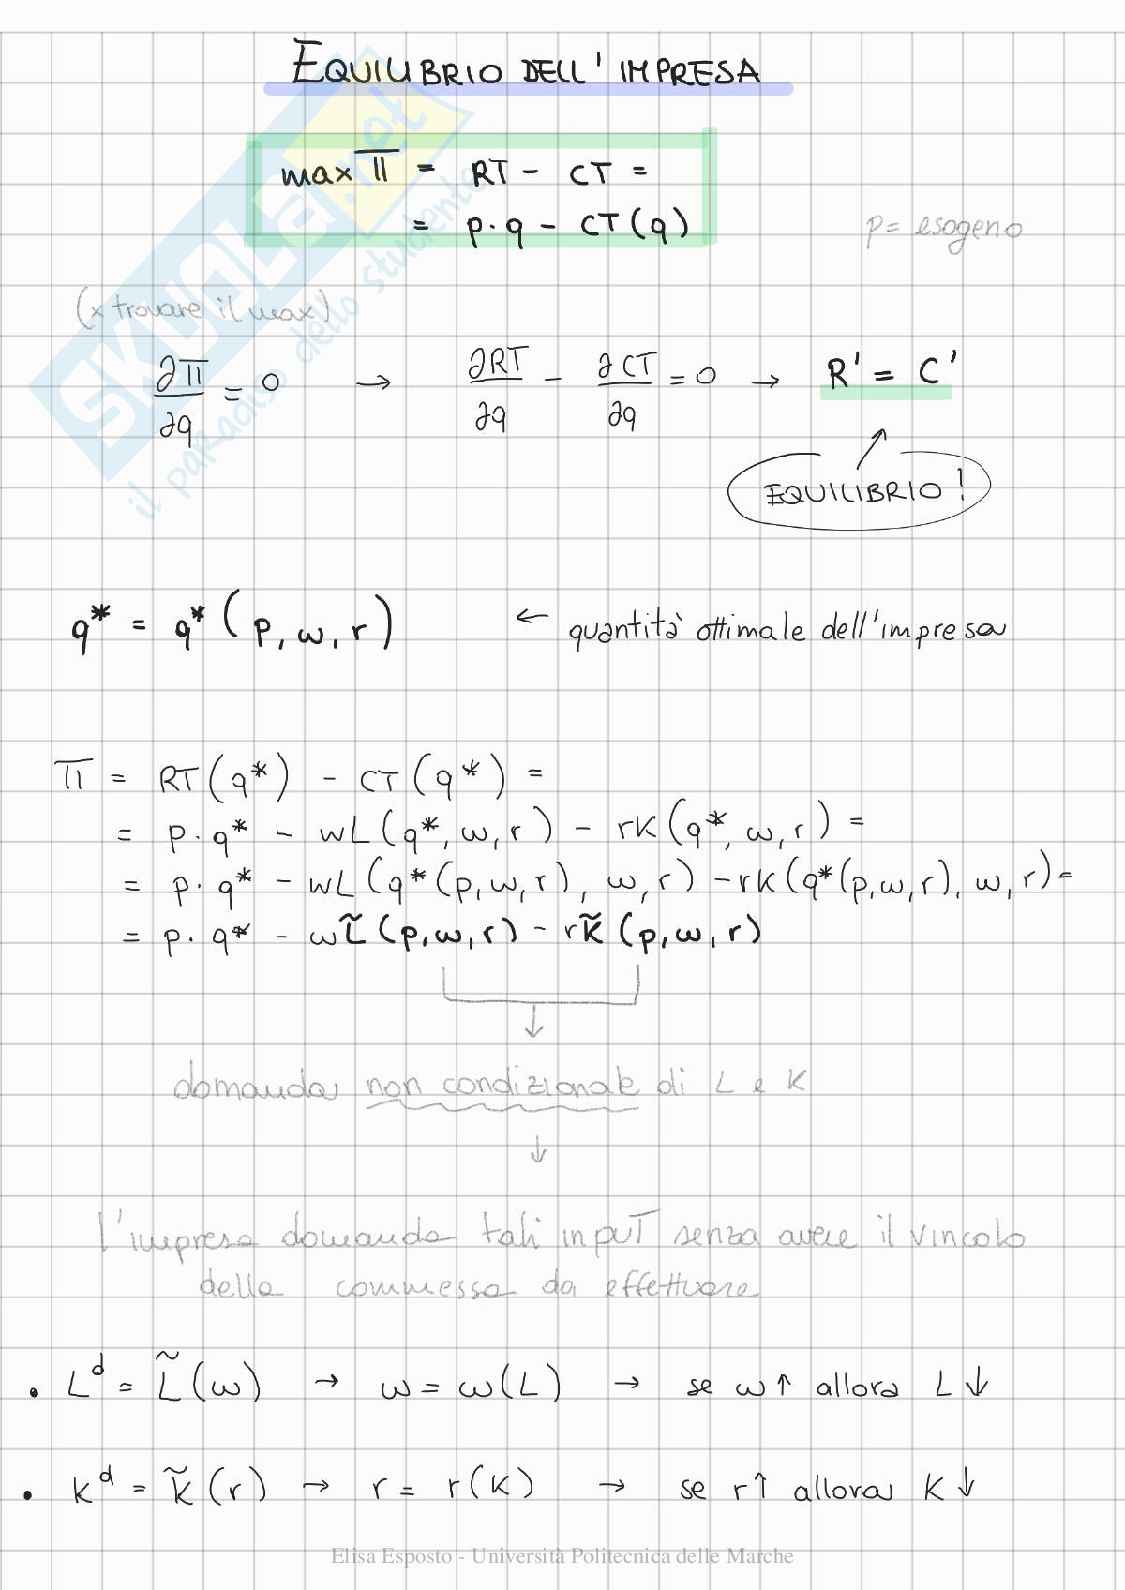 EQUILIBRIO DELL'IMPRESA
max Π = RT - CT =
= p·q - CT(q)
p= esogeno
(x trovare il max)
∂Π/∂q = 0 → ∂RT/∂q - ∂CT/∂q = 0 → R' = C'
EQUILIBRIO!
q* = q*(p, w, r) ← quantità ottimale dell'impresa
Π = RT(q*) - CT(q*) =
= p·q* - wL(q*, w, r) - rK(q*, w, r) =
= p·q* - wL(q*(p,w,r), w, r) - rK(q*(p,w,r), w, r) =
= p·q* - wL̃(p,w,r) - rK̃(p,w,r)
↓
domanda non condizionale di L e K
↓
l'impresa domanda tali input senza avere il vincolo
della commessa da effettuare
• L^d = L̃(w) → w = w(L) → se w↑ allora L↓
• K^d = K̃(r) → r = r(K) → se r↑ allora K↓
Elisa Esposto - Università Politecnica delle Marche
SKUOLA.net
il paradiso dello studente